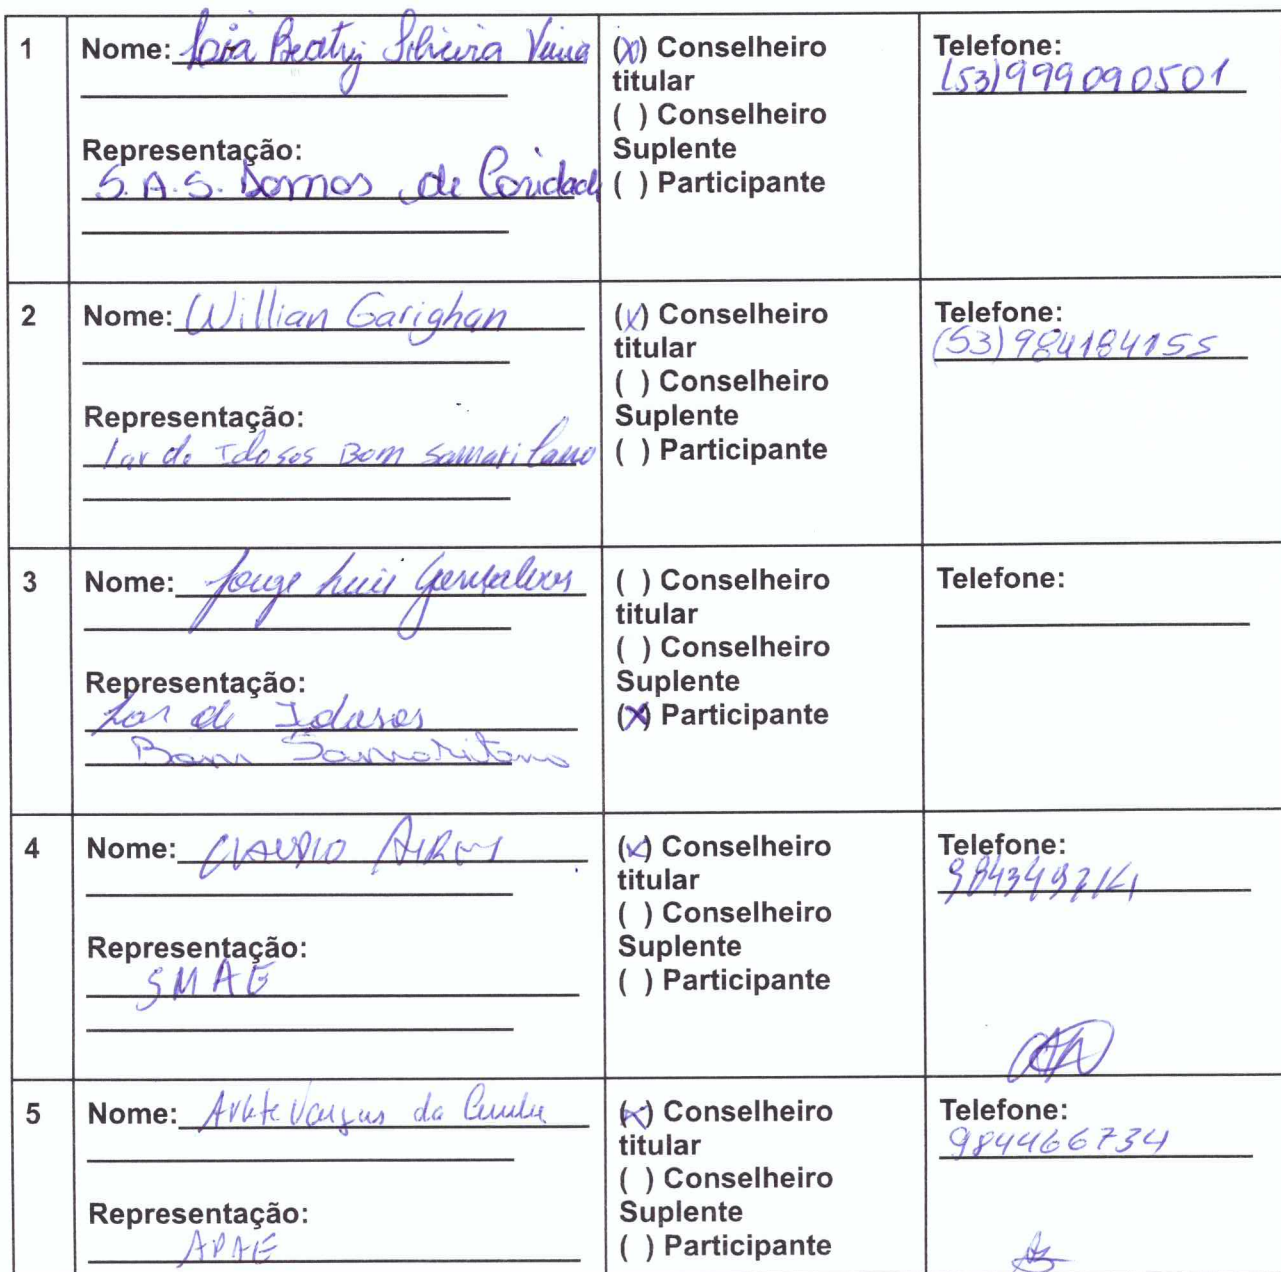 1
Nome: Beatriz Silveira Vieira
Representação:
S.A.S. Damas de Caridade
(X) Conselheiro
titular
( ) Conselheiro
Suplente
( ) Participante
Telefone:
(53)999090501
2
Nome: Willian Garighan
Representação:
Lar de Idosos Bom Samaritano
(X) Conselheiro
titular
( ) Conselheiro
Suplente
( ) Participante
Telefone:
(53)984184155
3
Nome: Jorge Luis Gonçalves
Representação:
Lar de Idosos
Bom Samaritano
( ) Conselheiro
titular
( ) Conselheiro
Suplente
(X) Participante
Telefone:
4
Nome: CLAUDIO
Representação:
SMAE
(X) Conselheiro
titular
( ) Conselheiro
Suplente
( ) Participante
Telefone:
5
Nome: Arlete Vargas da Cunha
Representação:
APAE
(X) Conselheiro
titular
( ) Conselheiro
Suplente
( ) Participante
Telefone:
984466734